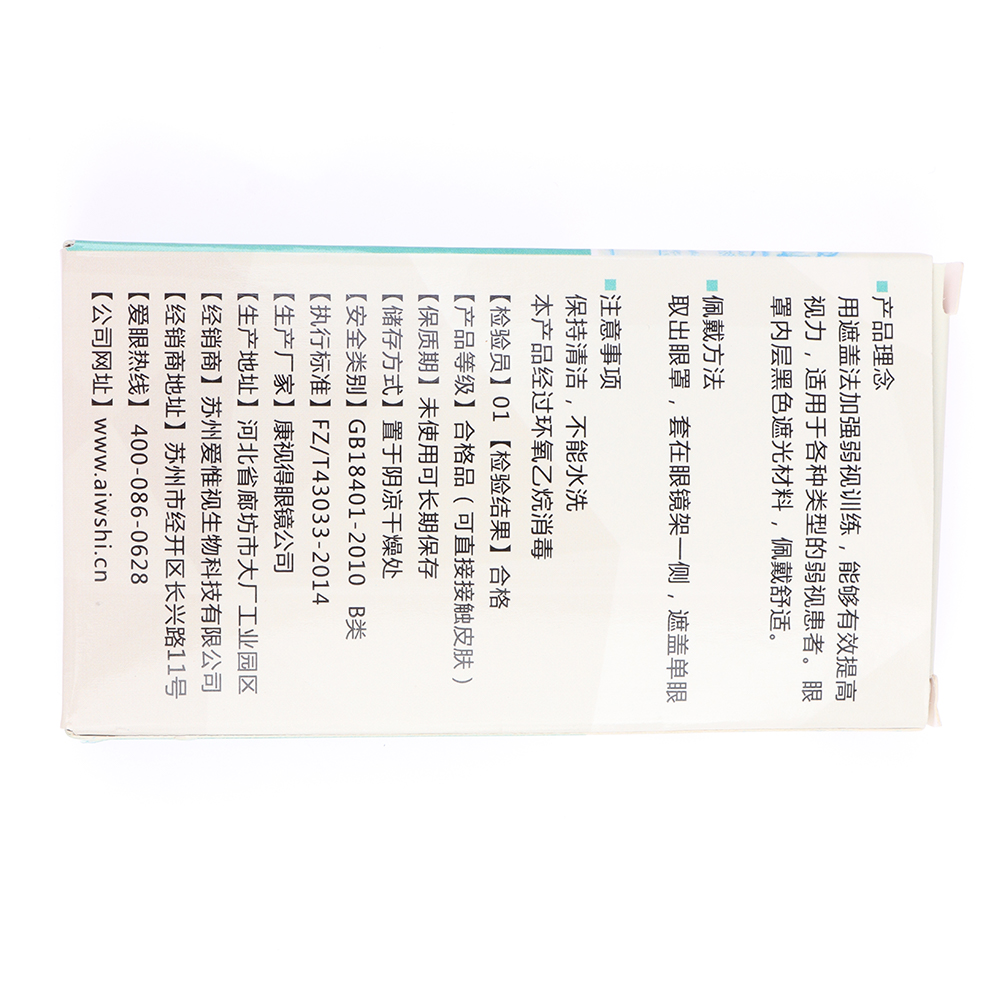 产品理念
用遮盖法加强弱视训练，能够有效提高
视力，适用于各种类型的弱视患者。眼
罩内层黑色遮光材料，佩戴舒适。
佩戴方法
取出眼罩，套在眼镜架一侧，遮盖单眼
注意事项
保持清洁，不能水洗
本产品经过环氧乙烷消毒
【检验员】01 【检验结果】合格
【产品等级】合格品（可直接接触皮肤）
【保质期】未使用可长期保存
【储存方式】置于阴凉干燥处
【安全类别】GB18401-2010 B类
【执行标准】FZ/T43033-2014
【生产厂家】康视得眼镜公司
【生产地址】河北省廊坊市大厂工业园区
【经销商】苏州爱惟视生物科技有限公司
【经销商地址】苏州市经开区长兴路11号
【爱眼热线】400-086-0628
【公司网址】www.aiwshi.cn